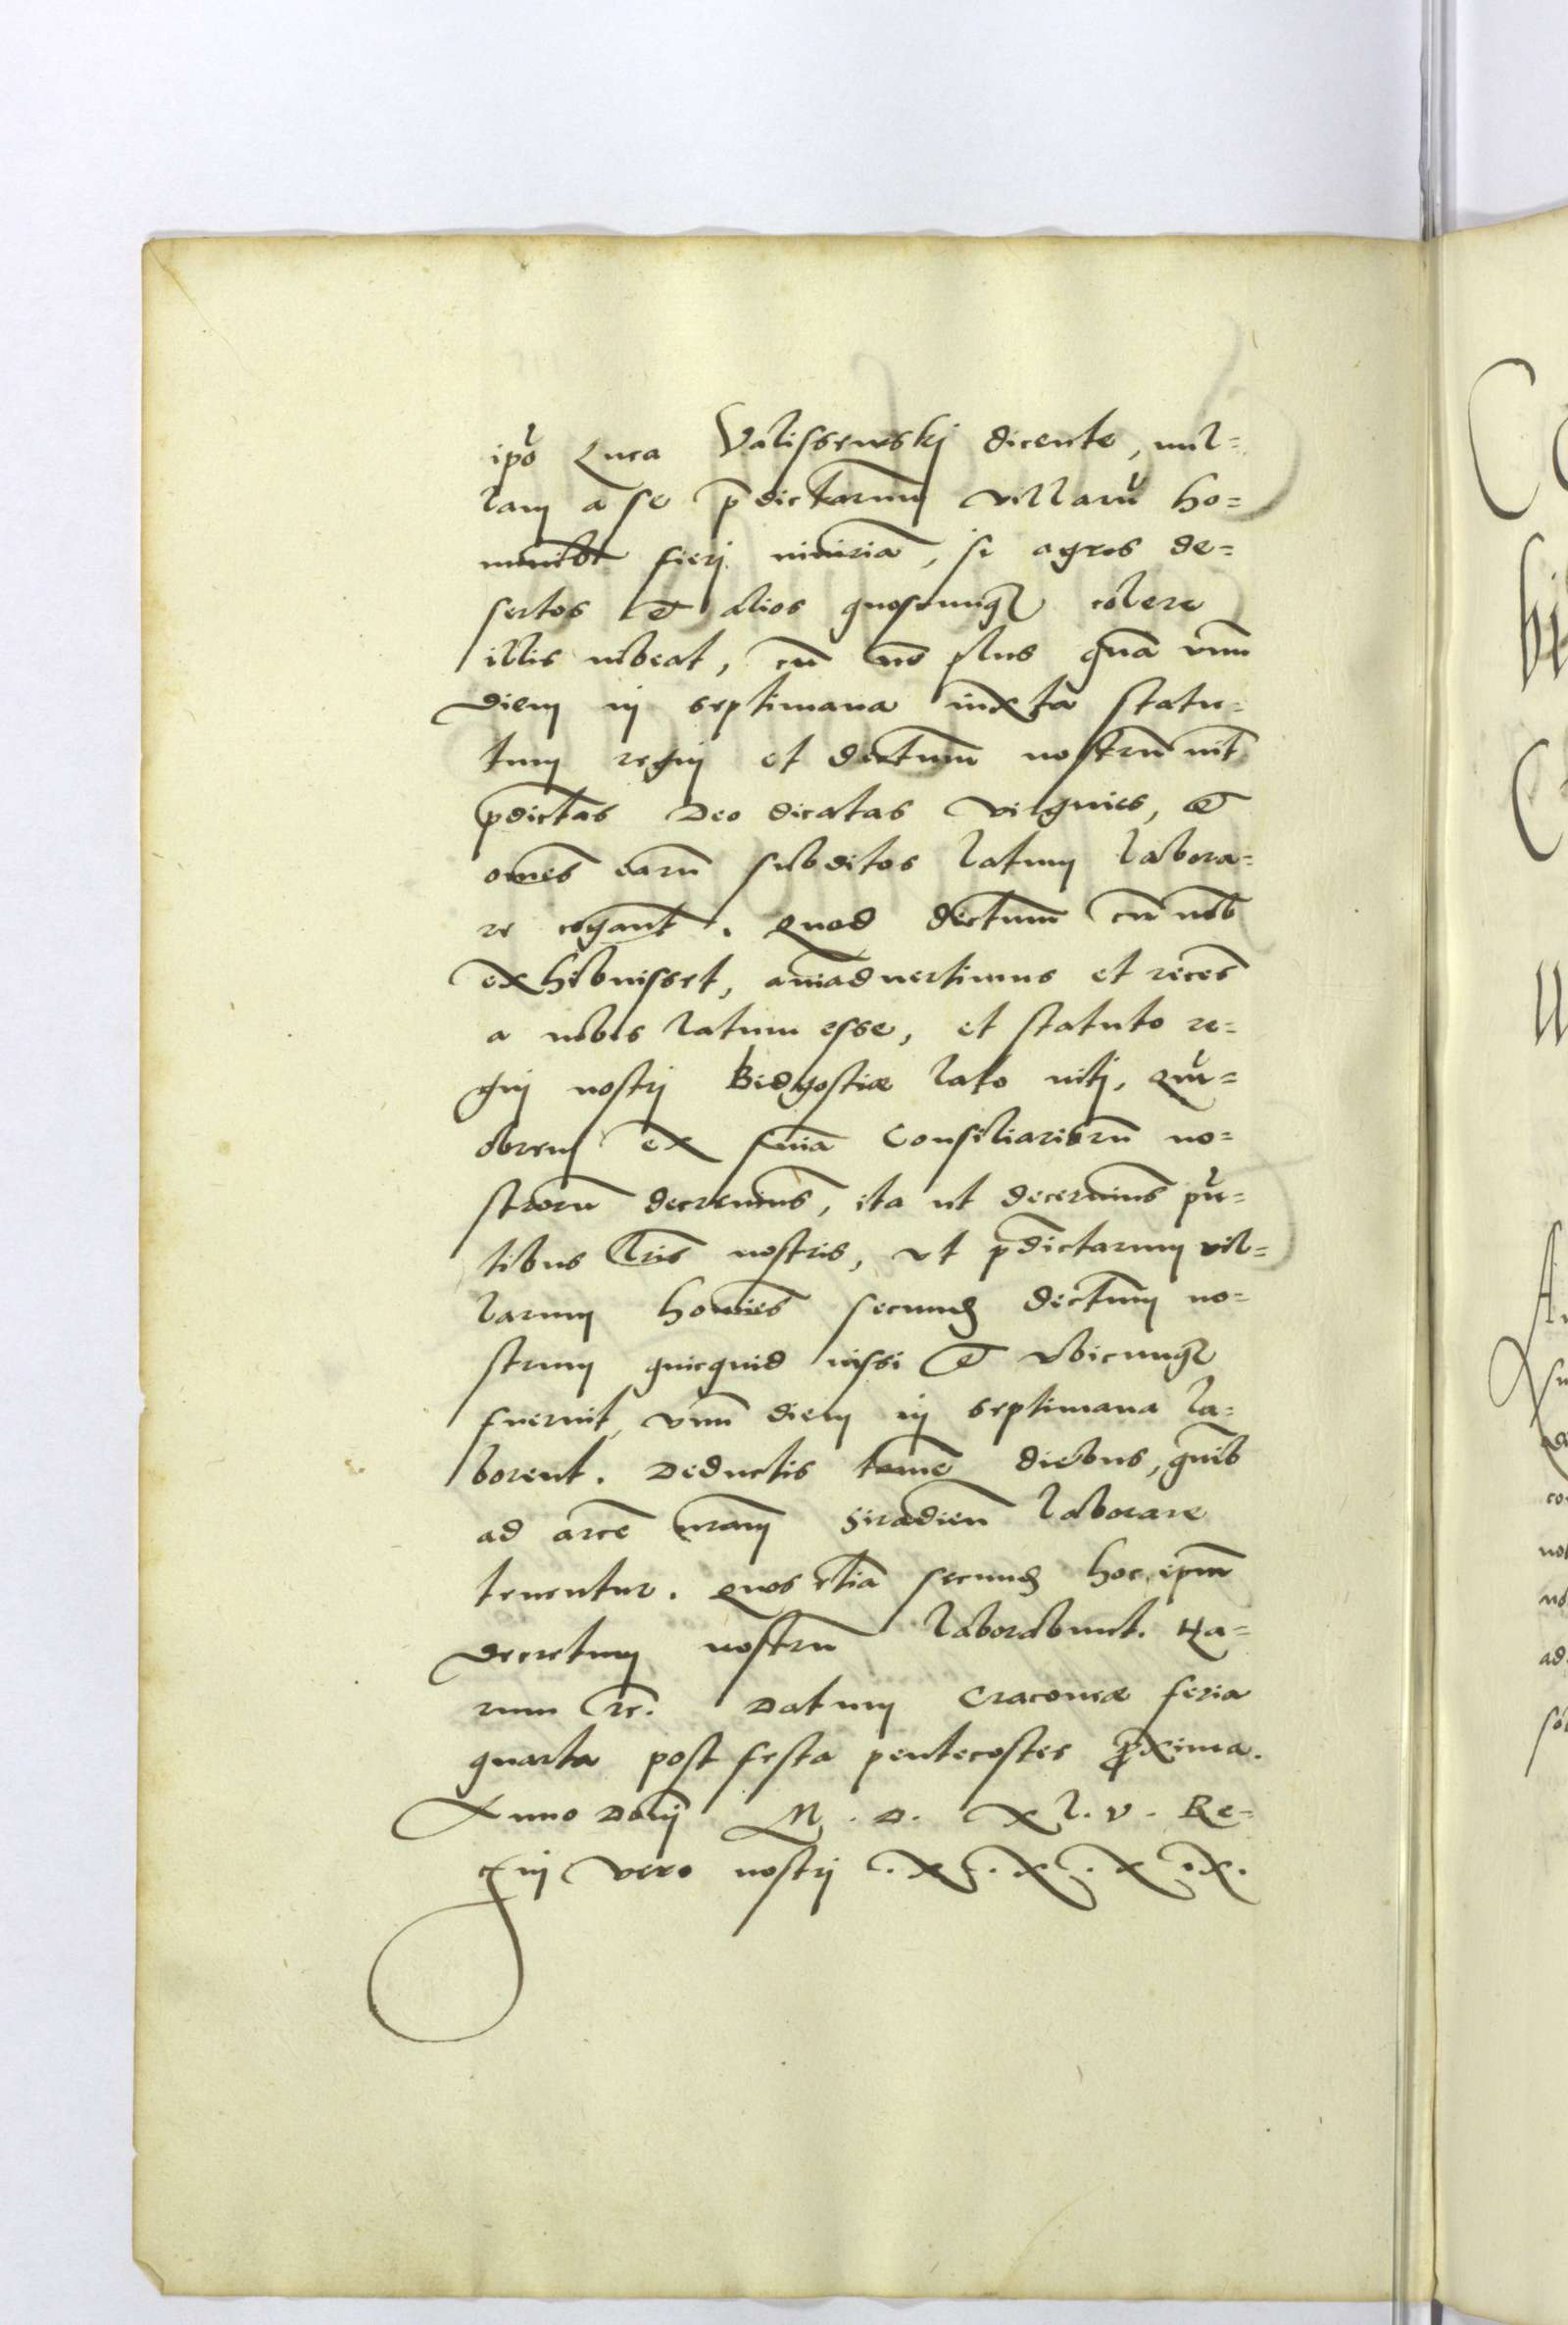 ipō Luca Valissewskj dicente, nul=
lam a se p̄dictarum villarū ho=
minibꝰ fierj iniuriā, si agros de=
sertos et alios quoscunqꝫ colere
illis iubeat, cū nō plus quā vnū
diem in septimana iuxta statu=
tum regnj et dectum nostrū int̄
p̄dictas Deo dicatas virgines, et
omēs earū subditos latum labora=
re cogant. Quod dectum cū nob̄
exhibuisset, aīaduertimus et recēs
a nobis latum esse, et statuto re=
gnj nostrj Bidgostiæ lato nitj. Qua=
obrem ex sn̄ia Consiliariorū no=
strorū decreuimus, ita ut decernimus pn̄=
tibus Lr̄is nostris, vt p̄dictarum vil=
larum homīes secundū dectum no=
strum quicquid iussi et vbicunqꝫ
fuerint, vnū diem in septimana la=
borent. Deductis tamē diebus, quib̄
ad arcē nr̄am Siradien̄ laborare
tenentur. Quos etiā secundū hoc ipm̄
Decretum nostrū laborabunt. Ha=
rum rc̄. Datum Cracouiæ feria
quarta post festa pentecostes proxima.
Anno Domj M. D. xl. v. Re=
gnj vero nostrj .x.x.x.ix.